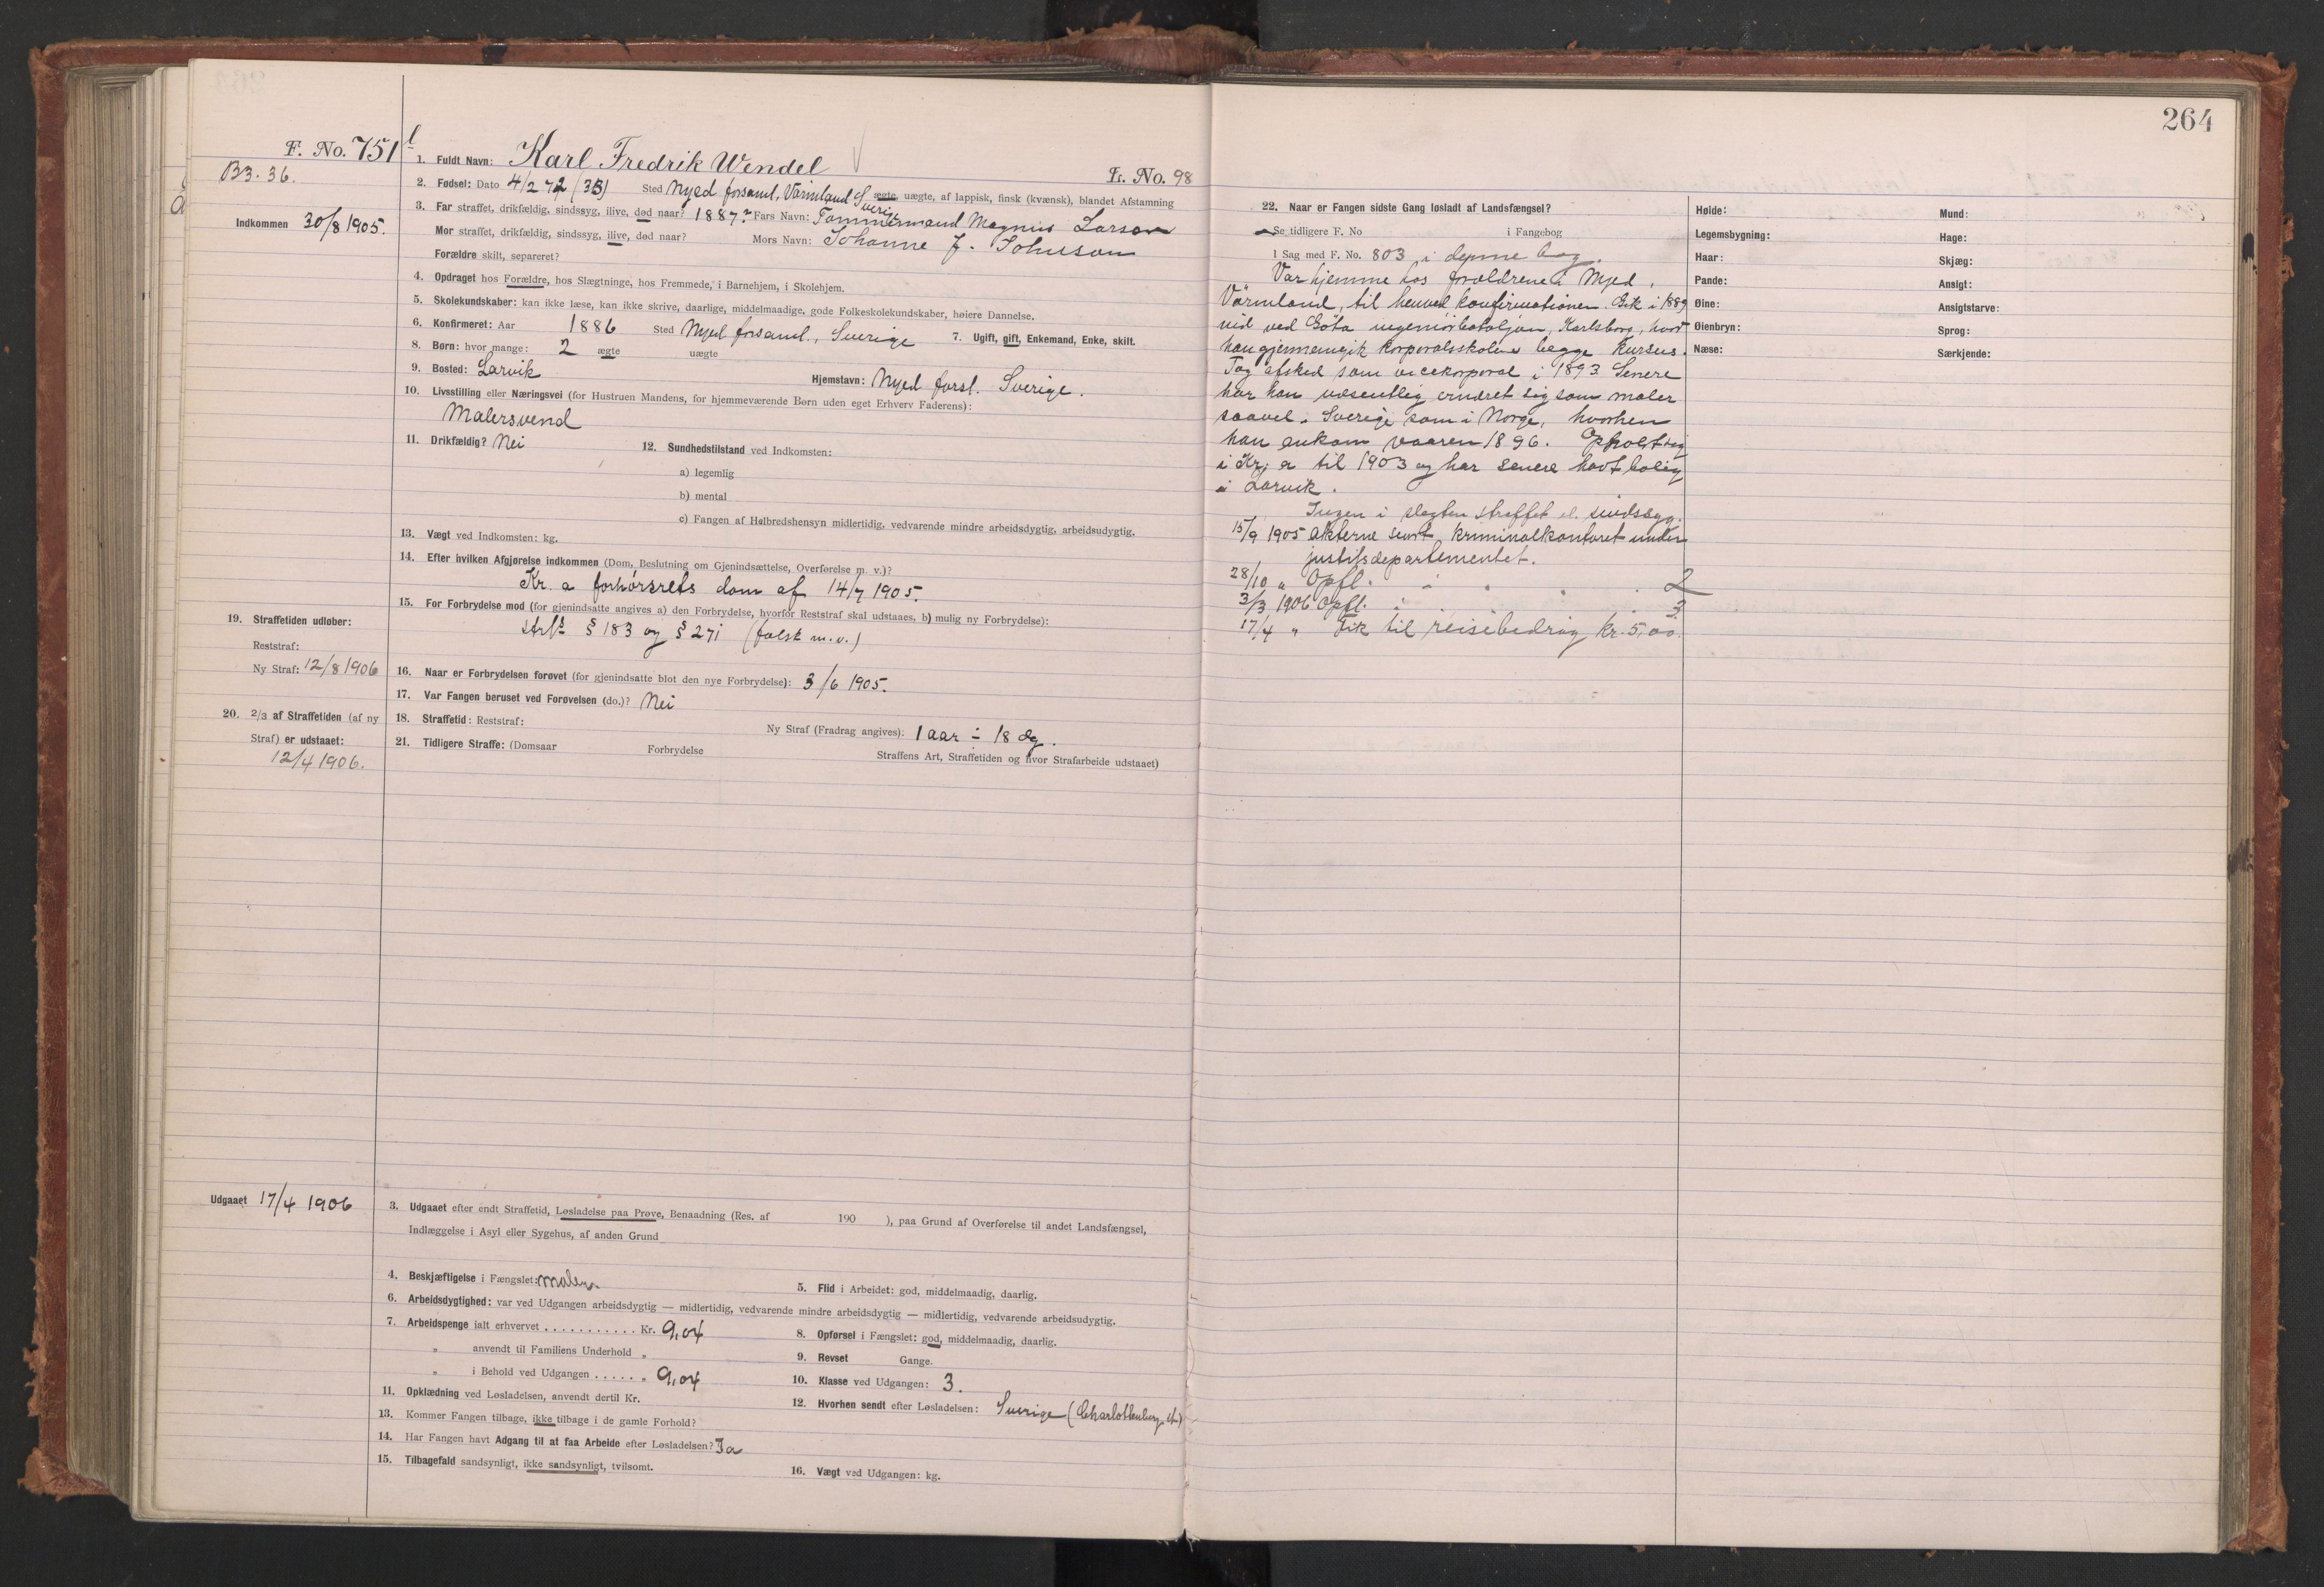 264
F. No. 751
B3. 36.
Indkommen 30/8 1905.
1. Fuldt Navn: Karl Fredrik Wendel
L. No. 98
2. Fødsel: Dato 4/2 72 (33) Sted Nyed forsaml, Värmland Sverige ægte, uægte, af lappisk, finsk (kvænsk), blandet Afstamning
3. Far straffet, drikfældig, sindssyg, ilive, død naar? 1887? Fars Navn: Tømmermand Magnus Larson
Mor straffet, drikfældig, sindssyg, ilive, død naar? Mors Navn: Johanne J. Johnson
Forældre skilt, separeret?
4. Opdraget hos Forældre, hos Slægtninge, hos Fremmede, i Barnehjem, i Skolehjem.
5. Skolekundskaber: kan ikke læse, kan ikke skrive, daarlige, middelmaadige, gode Folkeskolekundskaber, høiere Dannelse.
6. Konfirmeret: Aar 1886 Sted Nyed forsaml., Sverige 7. Ugift, gift, Enkemand, Enke, skilt.
8. Børn: hvor mange: 2 ægte uægte
9. Bosted: Larvik Hjemstavn: Nyed forsl. Sverige.
10. Livsstilling eller Næringsvei (for Hustruen Mandens, for hjemmeværende Børn uden eget Erhverv Faderens):
Malersvend
11. Drikfældig? Nei 12. Sundhedstilstand ved Indkomsten:
a) legemlig
b) mental
c) Fangen af Helbredshensyn midlertidig, vedvarende mindre arbeidsdygtig, arbeidsudygtig.
13. Vægt ved Indkomsten: kg.
14. Efter hvilken Afgjørelse indkommen (Dom, Beslutning om Gjenindsættelse, Overførelse m. v.)?
Kr. a forhørsrets dom af 14/7 1905.
15. For Forbrydelse mod (for gjenindsatte angives a) den Forbrydelse, hvorfor Reststraf skal udstaaes, b) mulig ny Forbrydelse):
§ 183 og § 271 (falsk m.v.)
19. Straffetiden udløber:
Reststraf:
Ny Straf: 12/8 1906
16. Naar er Forbrydelsen forøvet (for gjenindsatte blot den nye Forbrydelse): 3/6 1905.
17. Var Fangen beruset ved Forøvelsen (do.)? Nei
20. 2/3 af Straffetiden (af ny
Straf) er udstaaet:
12/4 1906.
18. Straffetid: Reststraf: Ny Straf (Fradrag angives): 1 aar ÷ 18 dg.
21. Tidligere Straffe: (Domsaar Forbrydelse Straffens Art, Straffetiden og hvor Strafarbeide udstaaet)
Udgaaet 17/4 1906
3. Udgaaet efter endt Straffetid, Løsladelse paa Prøve, Benaadning (Res. af 190 ), paa Grund af Overførelse til andet Landsfængsel,
Indlæggelse i Asyl eller Sygehus, af anden Grund
4. Beskjæftigelse i Fængslet: maler.
5. Flid i Arbeidet: god, middelmaadig, daarlig.
6. Arbeidsdygtighed: var ved Udgangen arbeidsdygtig — midlertidig, vedvarende mindre arbeidsdygtig — midlertidig, vedvarende arbeidsudygtig.
7. Arbeidspenge ialt erhvervet . . . . . . . . . . . Kr. 9,04
8. Opførsel i Fængslet: god, middelmaadig, daarlig.
„ anvendt til Familiens Underhold „
9. Revset Gange.
„ i Behold ved Udgangen . . . . . „ 9,04
10. Klasse ved Udgangen: 3.
11. Opklædning ved Løsladelsen, anvendt dertil Kr.
12. Hvorhen sendt efter Løsladelsen: Sverige (Charlottenberg st.)
13. Kommer Fangen tilbage, ikke tilbage i de gamle Forhold?
14. Har Fangen havt Adgang til at faa Arbeide efter Løsladelsen? Ja
15. Tilbagefald sandsynligt, ikke sandsynligt, tvilsomt.
16. Vægt ved Udgangen: kg.
22. Naar er Fangen sidste Gang løsladt af Landsfængsel?
Se tidligere F. No i Fangebog
I Sag med F. No. 803 i denne bog.
Var hjemme hos forældrene i Nyed,
Värmland, til henved konfirmationen. Gik i 1889
ind ved Göta ingeniörbataljon, Karlsborg, hvor
han gjennemgik korporalsskolens begge kursus.
Tog afsked som vicekorporal i 1893. Senere
har han væsentlig ernæret sig som maler
saavel i Sverige som i Norge, hvorhen
han ankom vaaren 1896. Opholdt sig
i Kr.a til 1903 og har senere havt bolig
i Larvik.
Ingen i slegten straffet el. sindssyg.
15/9 1905 akterne sendt kriminalkontoret under
justitsdepartementet.
28/10 „ Opfl. „ „ „ 2
3/3 1906 Opfl. „ 3
17/4 „ Fik til reisebidrag kr. 5,00.
Høide:
Legemsbygning:
Haar:
Pande:
Øine:
Øienbryn:
Næse:
Mund:
Hage:
Skjæg:
Ansigt:
Ansigtstarve:
Sprog:
Særkjende: